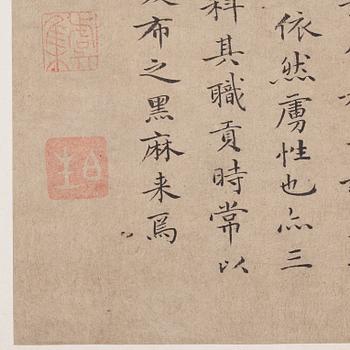 依然虜性也亦三
科其職貢時常以
布之黑麻来爲
虞集